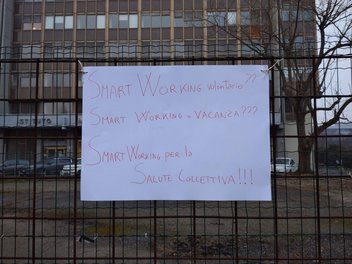 SMART WORKING volontario??
SMART WORKING = VACANZA???
SMART WORKING per la
SALUTE COLLETTIVA!!!